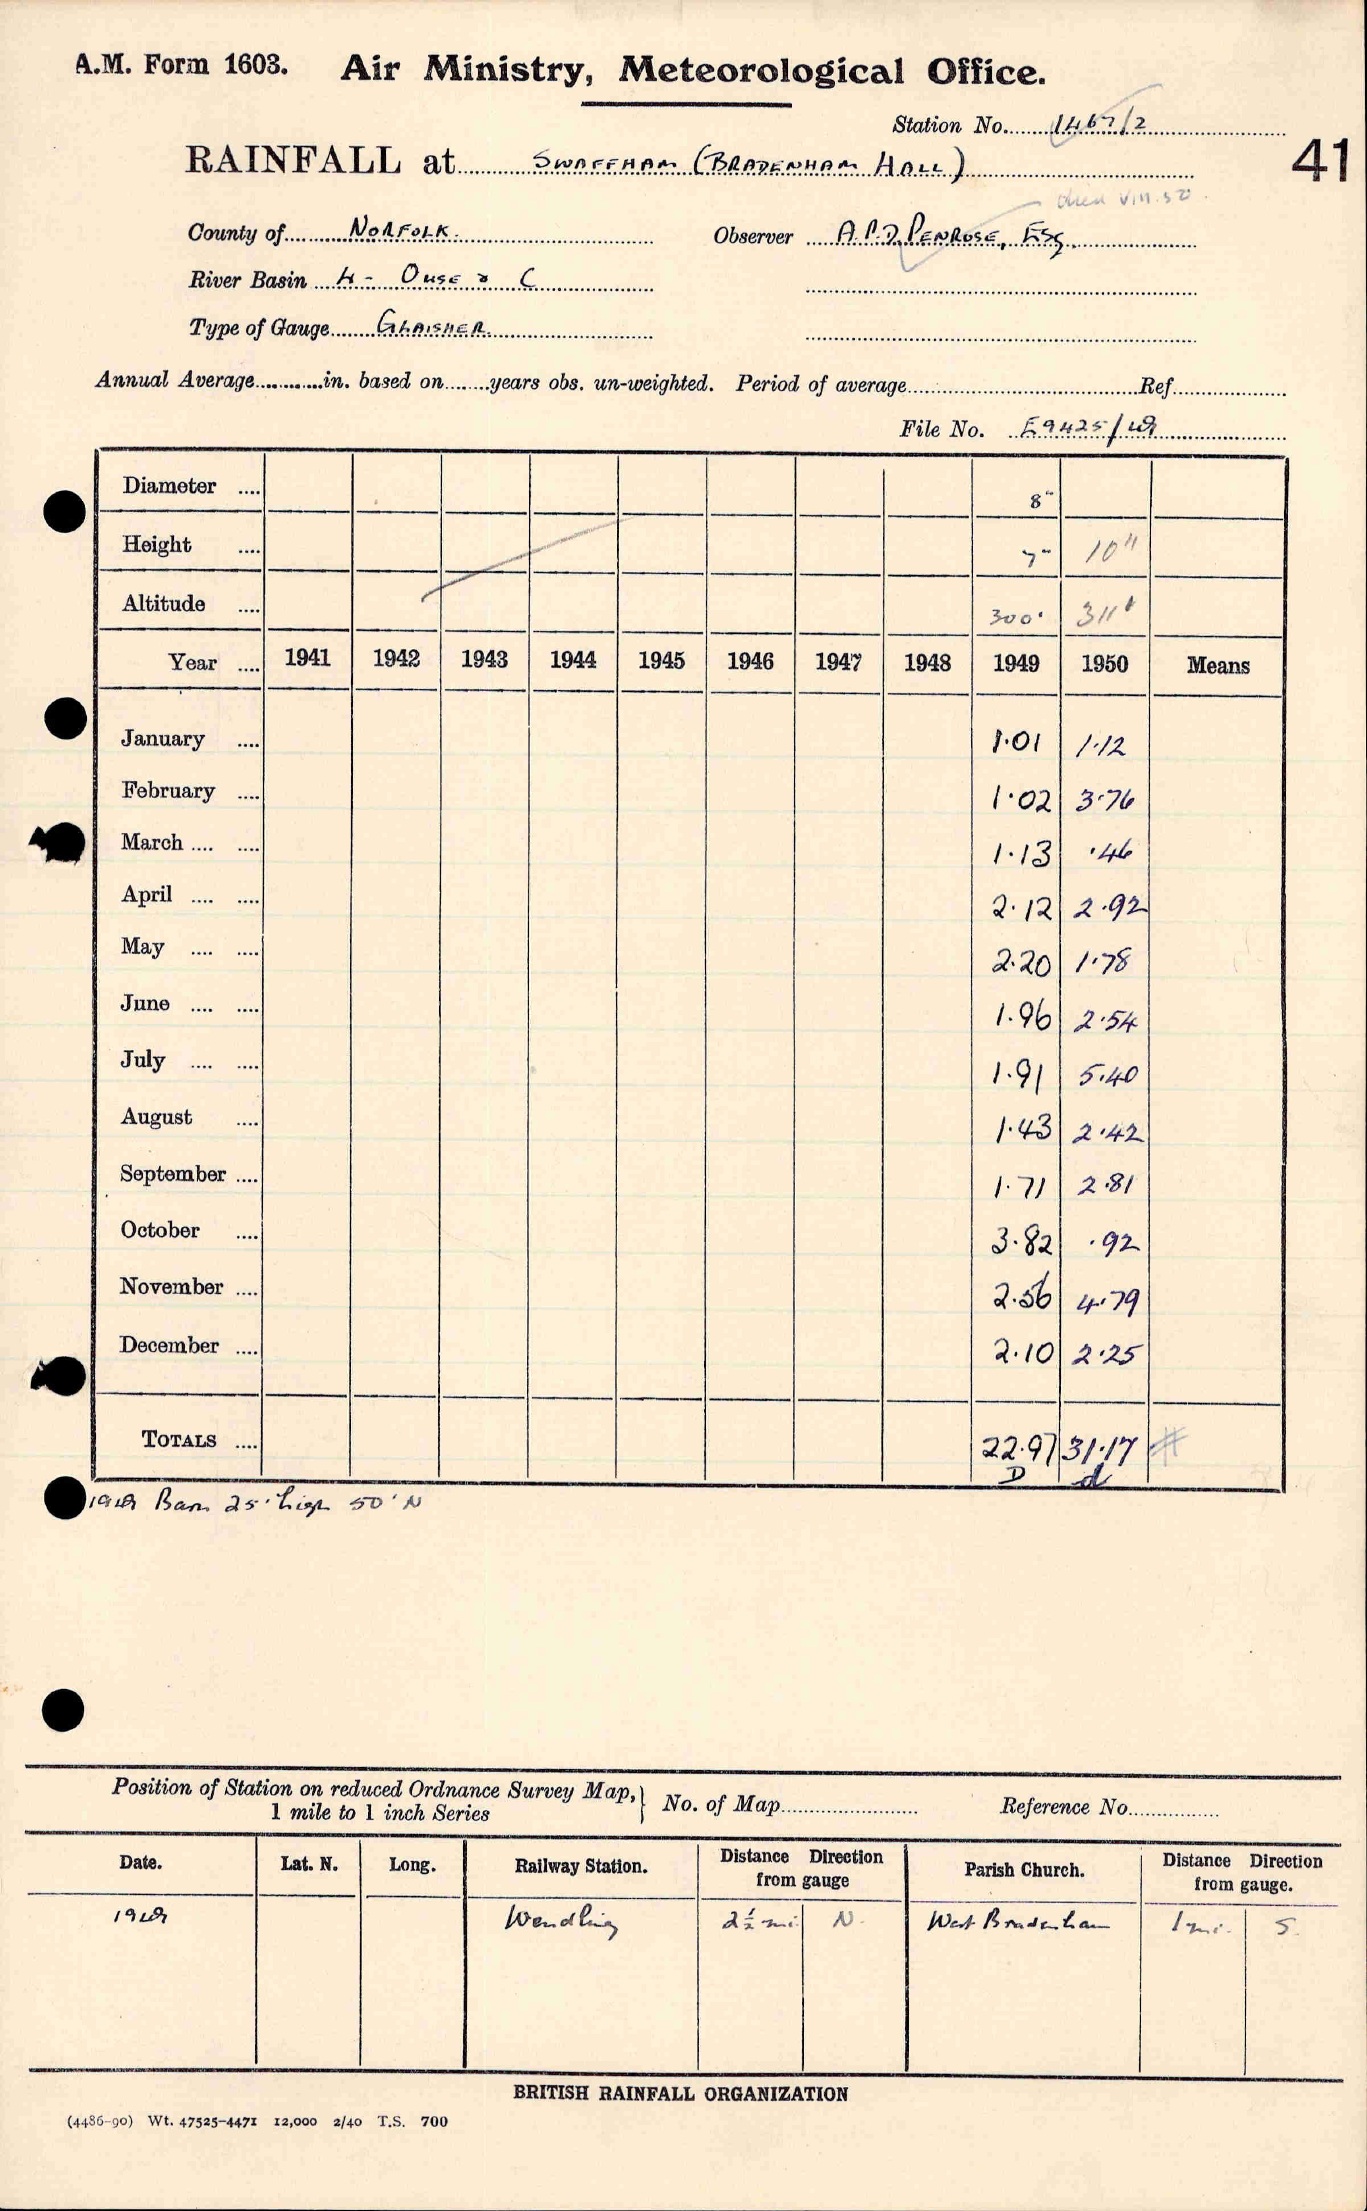 A.M. Form 1603. Air Ministry, Meteorological Office.
Station No. 1467/2
41
RAINFALL at SWAFFHAM (BRADENHAM HALL)
died VIII.50.
County of NORFOLK. Observer A.P.D. PENROSE, Esq.
River Basin 4 - OUSE & C
Type of Gauge GLAISHER
Annual Average in. based on years obs. un-weighted. Period of average Ref.
File No. E9425/49
Diameter 8"
Height 7" 10"
Altitude 300' 311'
Year 1941 1942 1943 1944 1945 1946 1947 1948 1949 1950 Means
January 1.01 1.12
February 1.02 3.76
March 1.13 .46
April 2.12 2.92
May 2.20 1.78
June 1.96 2.54
July 1.91 5.40
August 1.43 2.42
September 1.71 2.81
October 3.82 .92
November 2.56 4.79
December 2.10 2.25
TOTALS 22.97 31.17 #
D d
1949 Barn 25' high 50' N
Position of Station on reduced Ordnance Survey Map, } No. of Map Reference No.
1 mile to 1 inch Series
Date. Lat. N. Long. Railway Station. Distance Direction from gauge Parish Church. Distance Direction from gauge.
1949 Wendling 2½ mi. N. West Bradenham 1 mi. S.
BRITISH RAINFALL ORGANIZATION
(4486-90) Wt. 47525-4471 12,000 2/40 T.S. 700